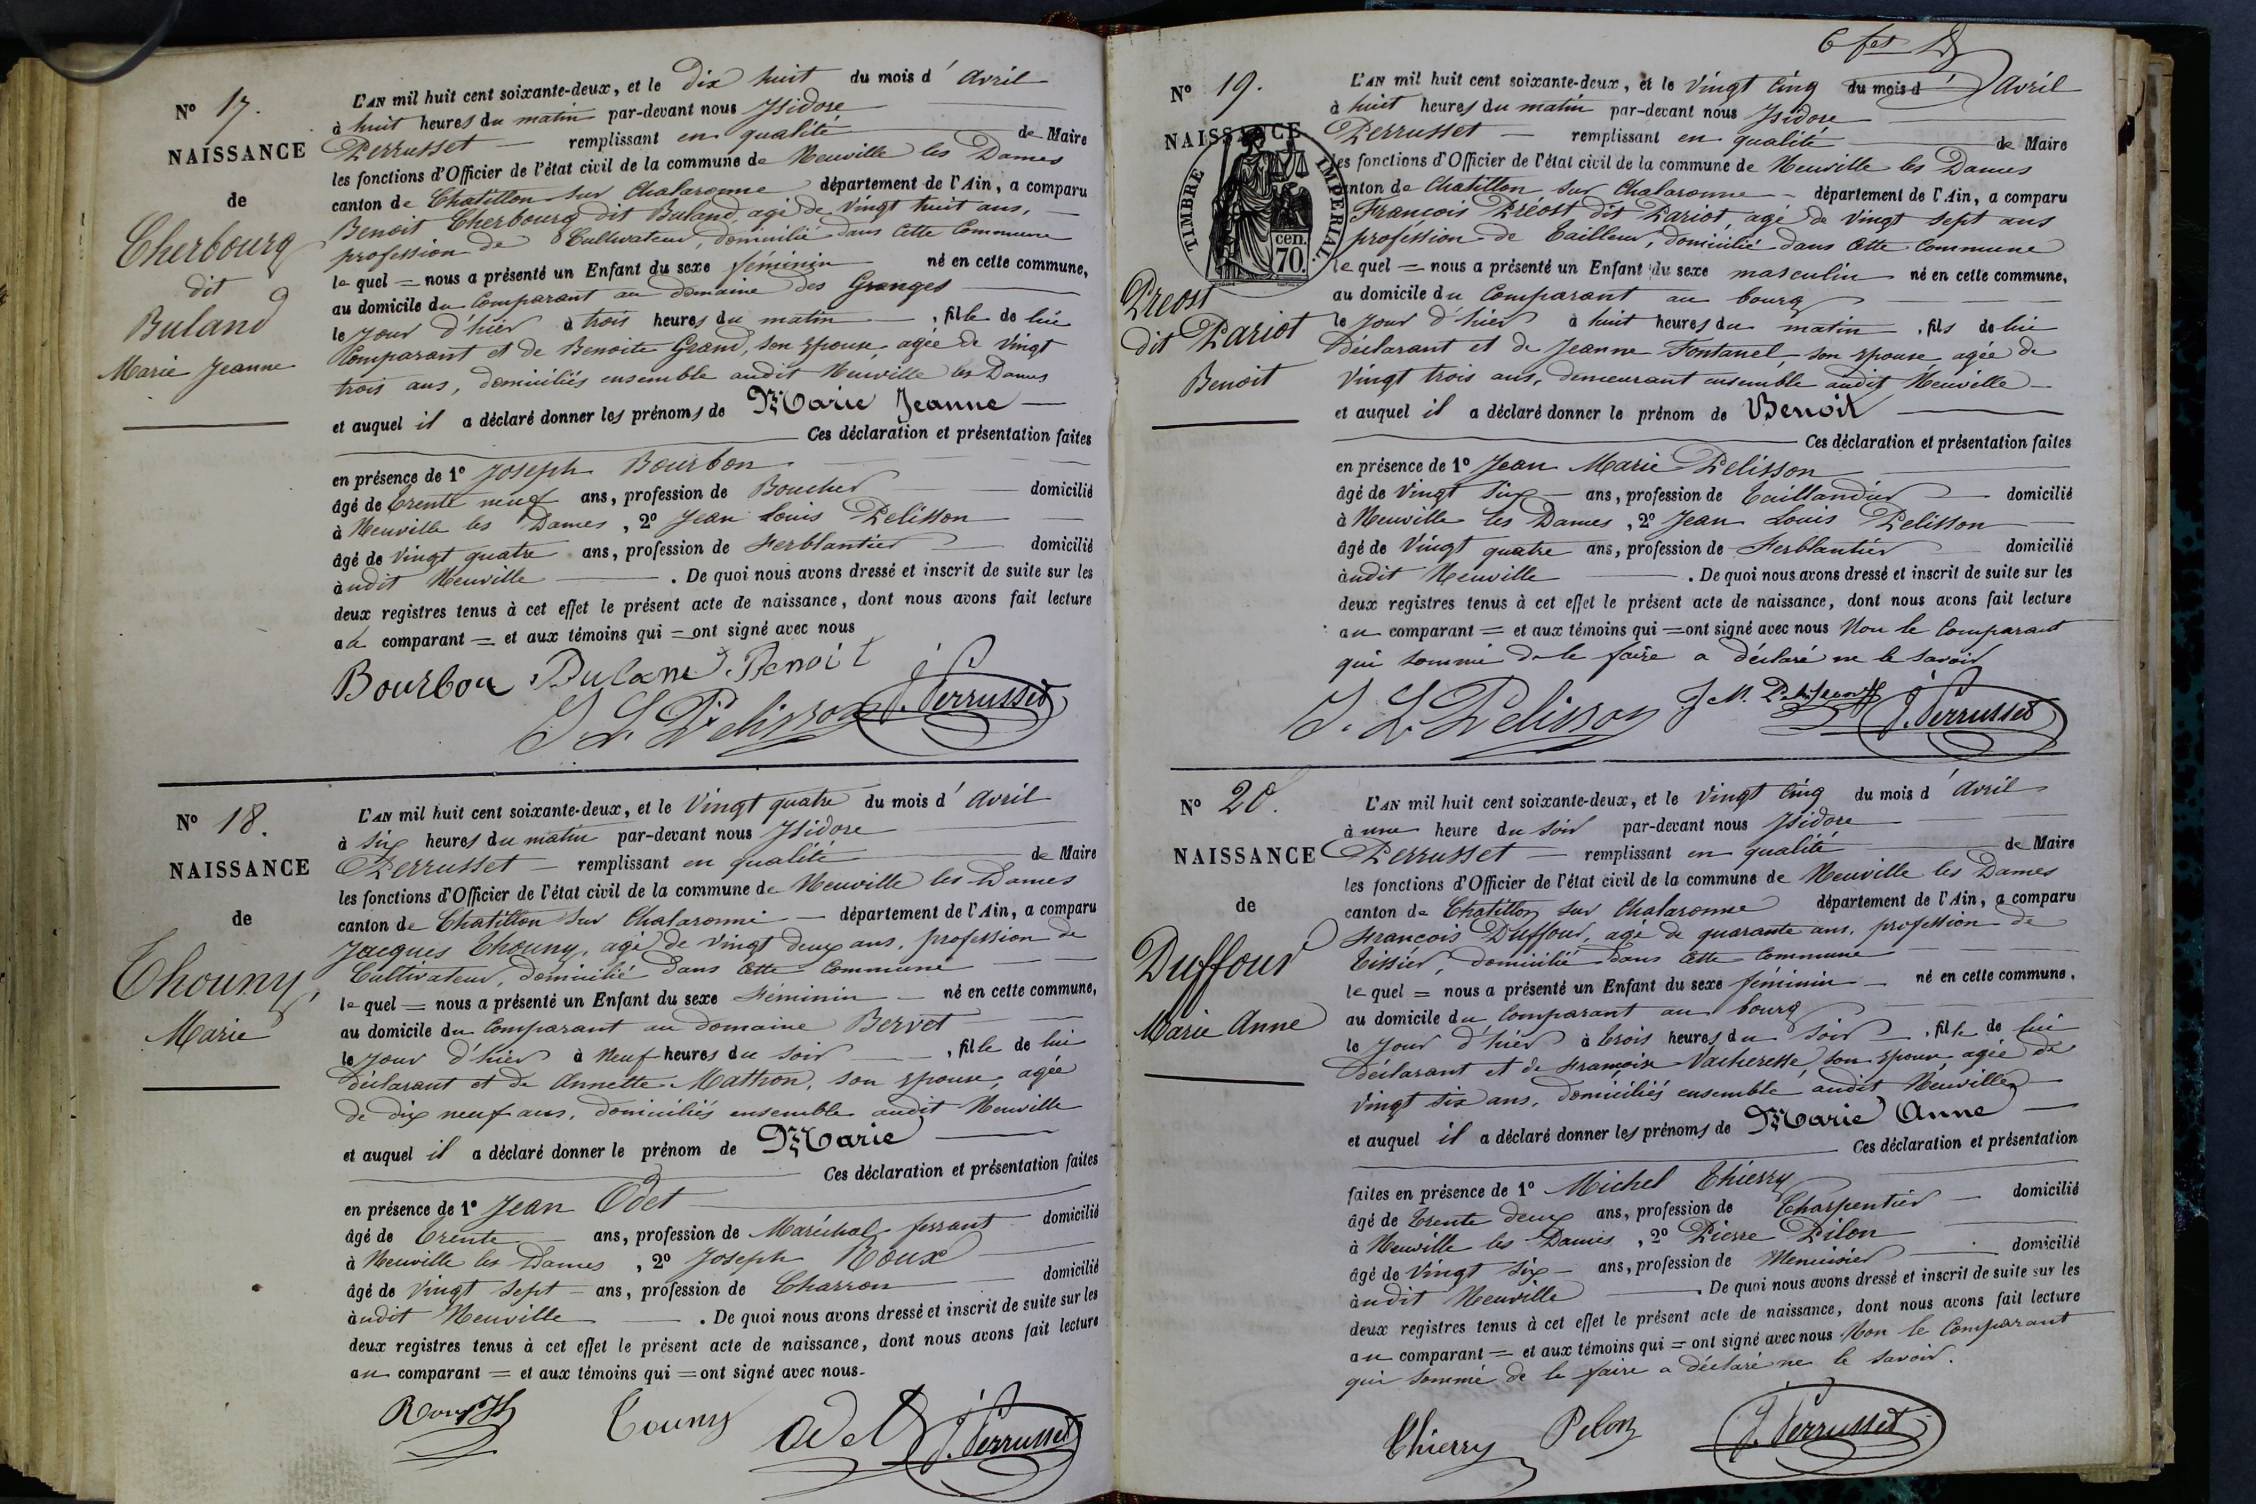 N° 17.
NAISSANCE
de
Cherbourg
dit
Buland
Marie Jeanne
L'AN mil huit cent soixante-deux, et le Dix huit du mois d' Avril
à huit heures du matin par-devant nous Isidore
Perrusset remplissant en qualité de Maire
les fonctions d'Officier de l'état civil de la commune de Neuville les Dames
canton de Chatillon sur Chalaronne département de l'Ain, a comparu
Benoit Cherbourg dit Buland, agé de Vingt huit ans,
profession de Cultivateur, domicilié dans cette Commune
le quel = nous a présenté un Enfant du sexe féminin né en cette commune,
au domicile du Comparant au domaine des Granges
le jour d'hier à trois heures du matin, fille de lui
Comparant et de Benoite Grand, son épouse, agée de Vingt
trois ans, domiciliés ensemble audit Neuville les Dames
et auquel il a déclaré donner les prénoms de Marie Jeanne
Ces déclaration et présentation faites
en présence de 1° Joseph Bourbon
âgé de trente neuf ans, profession de Boucher domicilié
à Neuville les Dames, 2° Jean Louis Pelisson
âgé de Vingt quatre ans, profession de Ferblantier domicilié
àudit Neuville. De quoi nous avons dressé et inscrit de suite sur les
deux registres tenus à cet effet le présent acte de naissance, dont nous avons fait lecture
au comparant = et aux témoins qui = ont signé avec nous
Bourbon Bulane Benoit
J. L. Pelisson J. Perrusset
N° 18.
NAISSANCE
de
Thouny,
Marie
L'AN mil huit cent soixante-deux, et le Vingt quatre du mois d' Avril
à six heures du matin par-devant nous Isidore
Perrusset remplissant en qualité de Maire
les fonctions d'Officier de l'état civil de la commune de Neuville les Dames
canton de Chatillon sur Chalaronne département de l'Ain, a comparu
Jacques Thouny, agé de Vingt deux ans, profession de
Cultivateur, domicilié dans Cette Commune
le quel = nous a présenté un Enfant du sexe Féminin né en cette commune,
au domicile du Comparant au domaine Bervet
le jour d'hier à Neuf heures du soir, fille de lui
déclarant et de Annette Mathon, son épouse, agée
de dix neuf ans, domiciliés ensemble audit Neuville
et auquel il a déclaré donner le prénom de Marie
Ces déclaration et présentation faites
en présence de 1° Jean Odet
âgé de trente ans, profession de Maréchal ferrant domicilié
à Neuville les Dames, 2° Joseph Roux
âgé de Vingt Sept ans, profession de Charron domicilié
àudit Neuville. De quoi nous avons dressé et inscrit de suite sur les
deux registres tenus à cet effet le présent acte de naissance, dont nous avons fait lecture
au comparant = et aux témoins qui = ont signé avec nous.
Roux Touny Odet J. Perrusset
6 fer
N° 19.
NAISSANCE
TIMBRE IMPERIAL.
cen.
70.
Preost
dit Pariot
Benoit
L'AN mil huit cent soixante-deux, et le Vingt Cinq du mois d' Avril
à huit heures du matin par-devant nous Isidore
Perrusset remplissant en qualité de Maire
les fonctions d'Officier de l'état civil de la commune de Neuville les Dames
canton de Chatillon sur Chalaronne département de l'Ain, a comparu
François Préost dit Pariot, agé de Vingt sept ans
profession de Tailleur, domicilié dans Cette Commune
le quel = nous a présenté un Enfant du sexe masculin né en cette commune,
au domicile du Comparant au bourg
le jour d'hier à huit heures du matin, fils de lui
déclarant et de Jeanne Fontanel son épouse agée de
Vingt trois ans, demeurant ensemble audit Neuville
et auquel il a déclaré donner le prénom de Benoit
Ces déclaration et présentation faites
en présence de 1° Jean Marie Pelisson
âgé de Vingt Six ans, profession de Taillandier domicilié
à Neuville les Dames, 2° Jean Louis Pelisson
âgé de Vingt quatre ans, profession de Ferblantier domicilié
àudit Neuville. De quoi nous avons dressé et inscrit de suite sur les
deux registres tenus à cet effet le présent acte de naissance, dont nous avons fait lecture
au comparant = et aux témoins qui = ont signé avec nous Non le Comparant
qui sommé de le faire a déclaré ne le savoir
J. L. Pelisson J M. Pelisson J. Perrusset
N° 20.
NAISSANCE
de
Duffour
Marie Anne
L'AN mil huit cent soixante-deux, et le Vingt Cinq du mois d' Avril
à une heure du soir par-devant nous Isidore
Perrusset remplissant en qualité de Maire
les fonctions d'Officier de l'état civil de la commune de Neuville les Dames
canton de Chatillon sur Chalaronne département de l'Ain, a comparu
François Duffour, agé de quarante ans, profession de
Tissier, domicilié dans Cette Commune
le quel = nous a présenté un Enfant du sexe féminin né en cette commune,
au domicile du Comparant au bourg
le jour d'hier à trois heures du soir, fille de lui
déclarant et de Françoise Vacheresse, son épouse agée de
Vingt six ans, domiciliés ensemble audit Neuville
et auquel il a déclaré donner les prénoms de Marie Anne
Ces déclaration et présentation
faites en présence de 1° Michel Thierry
âgé de trente deux ans, profession de Charpentier domicilié
à Neuville les Dames, 2° Pierre Pilon
âgé de Vingt Six ans, profession de Menuisier domicilié
àudit Neuville. De quoi nous avons dressé et inscrit de suite sur les
deux registres tenus à cet effet le présent acte de naissance, dont nous avons fait lecture
au comparant = et aux témoins qui = ont signé avec nous Non le Comparant
qui sommé de le faire a déclaré ne le savoir.
Thierry Pelon J. Perrusset